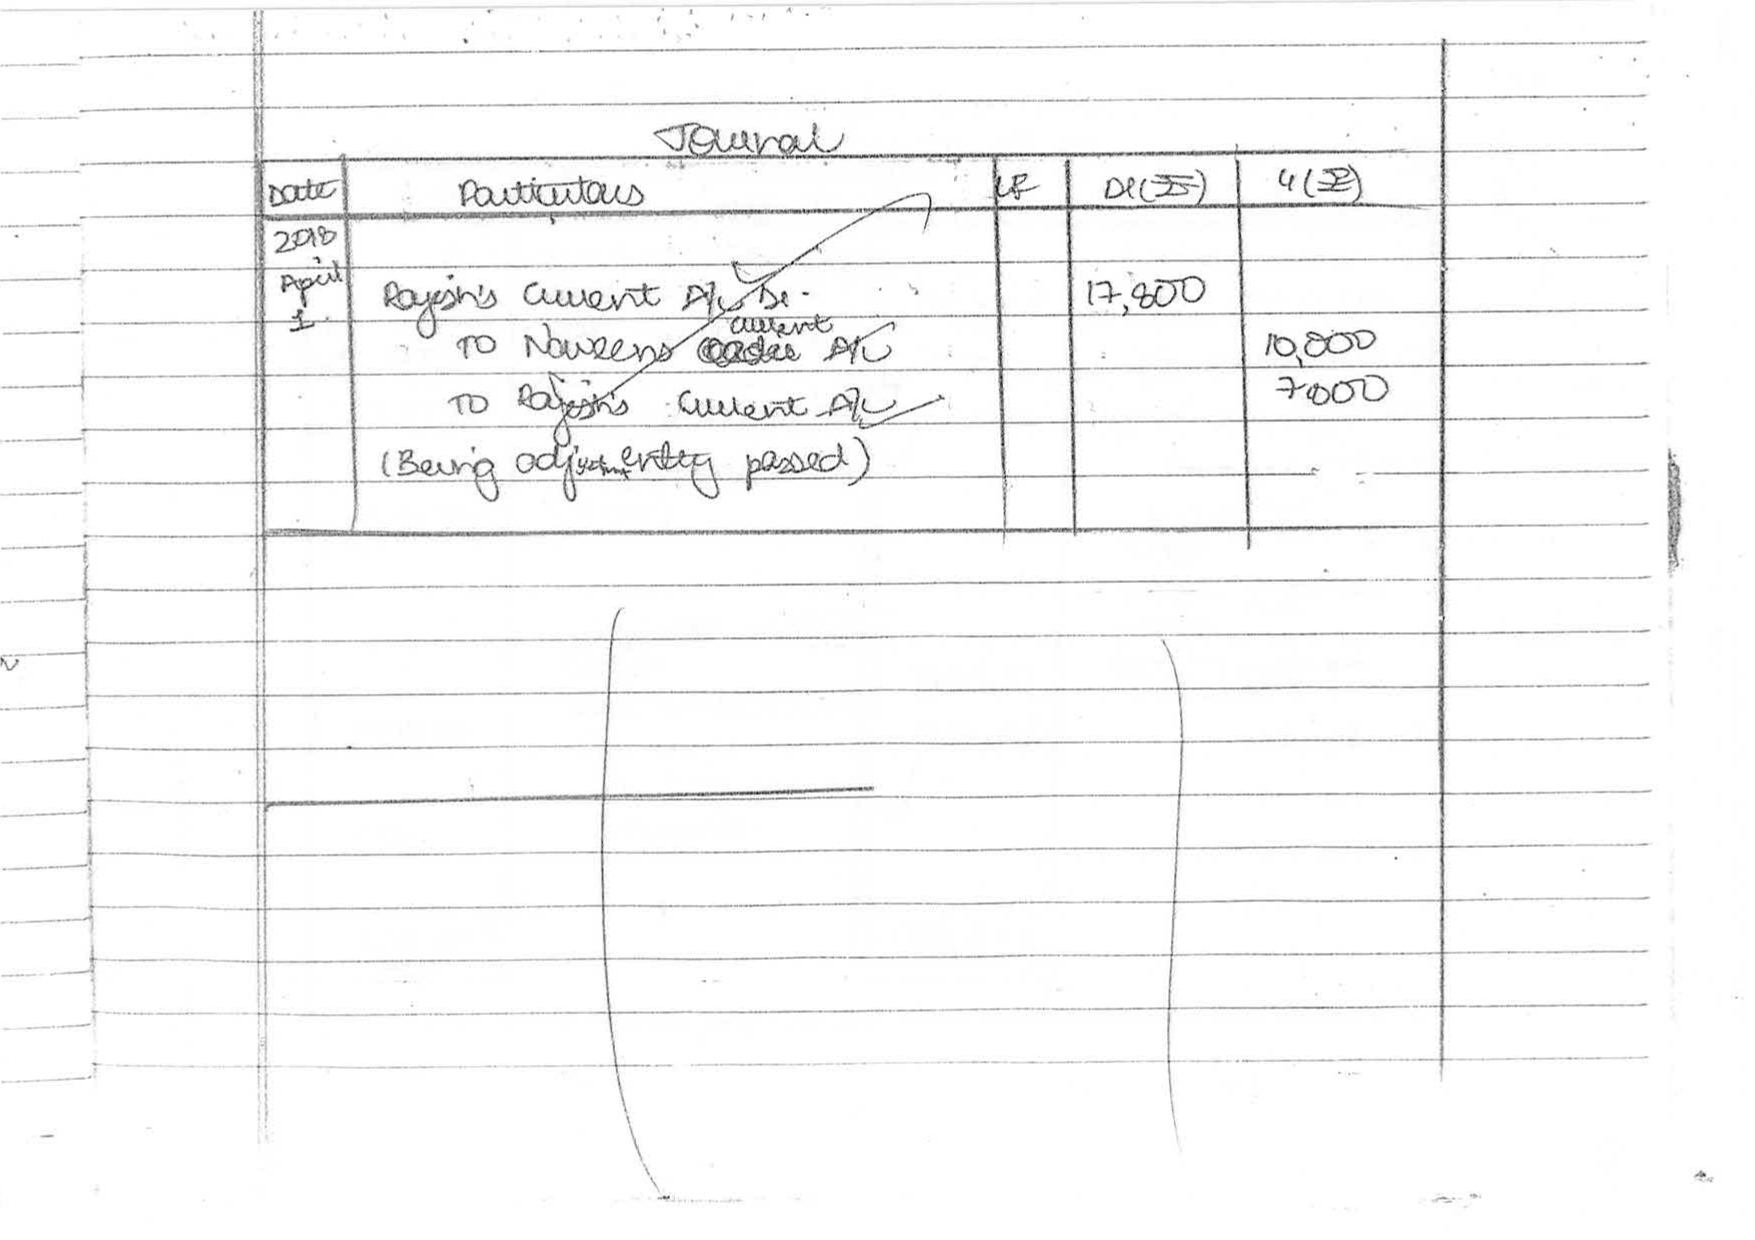 Journal
Date Particulars LF Dr(₹) Cr(₹)
2018
April
1.
Rajesh's Current A/c Dr. 17,800
To Naveens current A/c 10,000
To Rajesh's Current A/c 7800
(Being adjustment entry passed)